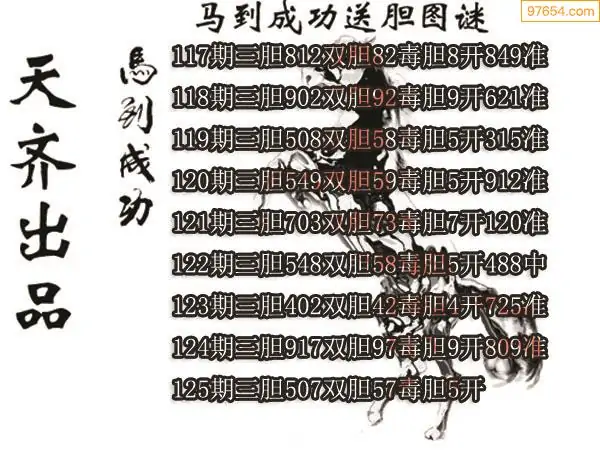 马到成功送胆图谜
97654.com
天齐出品
馬到成功
117期三胆812双胆82毒胆8开849准
118期三胆902双胆92毒胆9开621准
119期三胆508双胆58毒胆5开315准
120期三胆549双胆59毒胆5开912准
121期三胆703双胆73毒胆7开120准
122期三胆548双胆58毒胆5开488中
123期三胆402双胆42毒胆4开725准
124期三胆917双胆97毒胆9开809准
125期三胆507双胆57毒胆5开